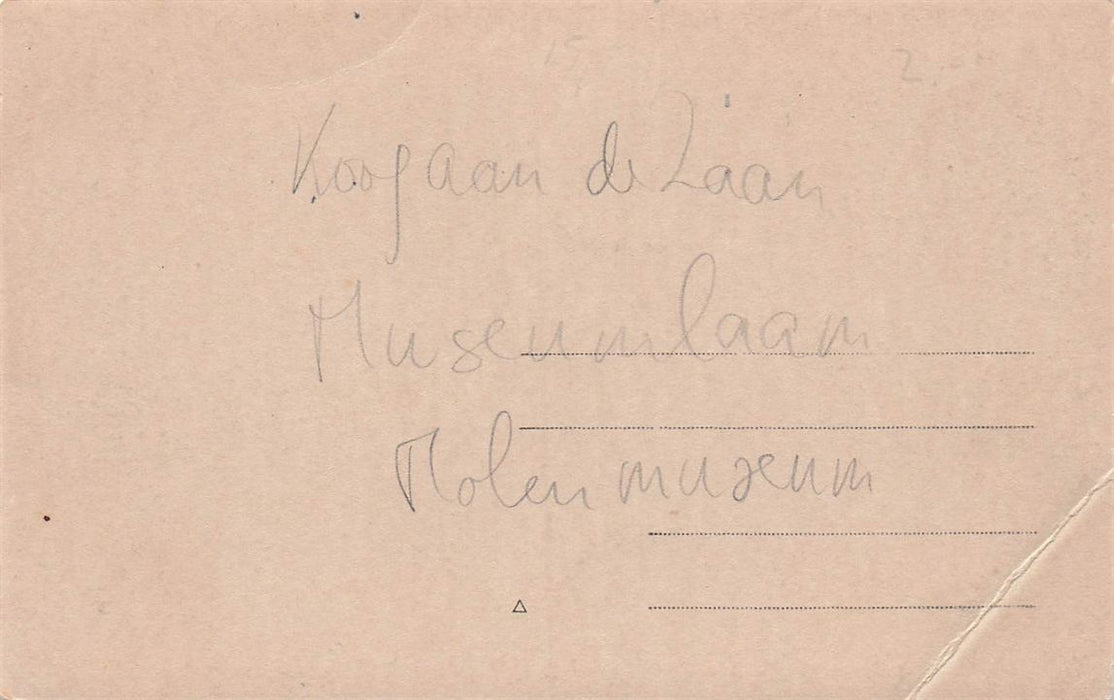 15
2.--
Koog aan de Zaan
Museumlaan
Molenmuseum